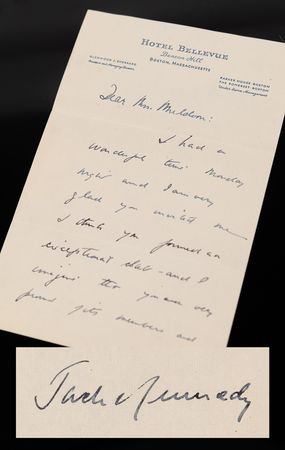 HOTEL BELLEVUE
Beacon Hill
BOSTON, MASSACHUSETTS
GLENWOOD J. SHERRARD
President and Managing Director
PARKER HOUSE · BOSTON
THE SOMERSET, BOSTON
Under Same Management
Dear Mrs. Muldoon:
I had a
wonderful time Monday
night and I am very
glad you invited me
I think you formed an
exceptional club - and I
imagine that you are very
proud of its members and
Jack Kennedy